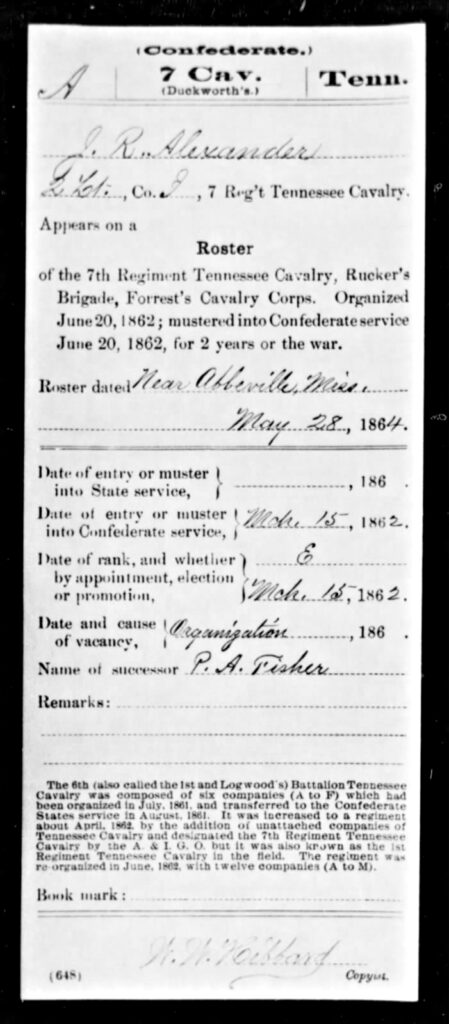 (Confederate.)
A 7 Cav. Tenn.
(Duckworth's.)
J. R. Alexander
2 Lt., Co. I, 7 Reg't Tennessee Cavalry.
Appears on a
Roster
of the 7th Regiment Tennessee Cavalry, Rucker's
Brigade, Forrest's Cavalry Corps. Organized
June 20, 1862; mustered into Confederate service
June 20, 1862, for 2 years or the war.
Roster dated Near Abbeville, Miss.
May 28, 1864.
Date of entry or muster
into State service, , 186 .
Date of entry or muster
into Confederate service, Mch. 15, 1862.
Date of rank, and whether E
by appointment, election
or promotion, Mch. 15, 1862.
Date and cause
of vacancy, Organization , 186 .
Name of successor P. A. Fisher
Remarks:
The 6th (also called the 1st and Logwood's) Battalion Tennessee
Cavalry was composed of six companies (A to F) which had
been organized in July, 1861, and transferred to the Confederate
States service in August, 1861. It was increased to a regiment
about April, 1862, by the addition of unattached companies of
Tennessee Cavalry and designated the 7th Regiment Tennessee
Cavalry by the A. & I. G. O. but it was also known as the 1st
Regiment Tennessee Cavalry in the field. The regiment was
re-organized in June, 1862, with twelve companies (A to M).
Book mark:
W. W. Hibbard
(648) Copyist.